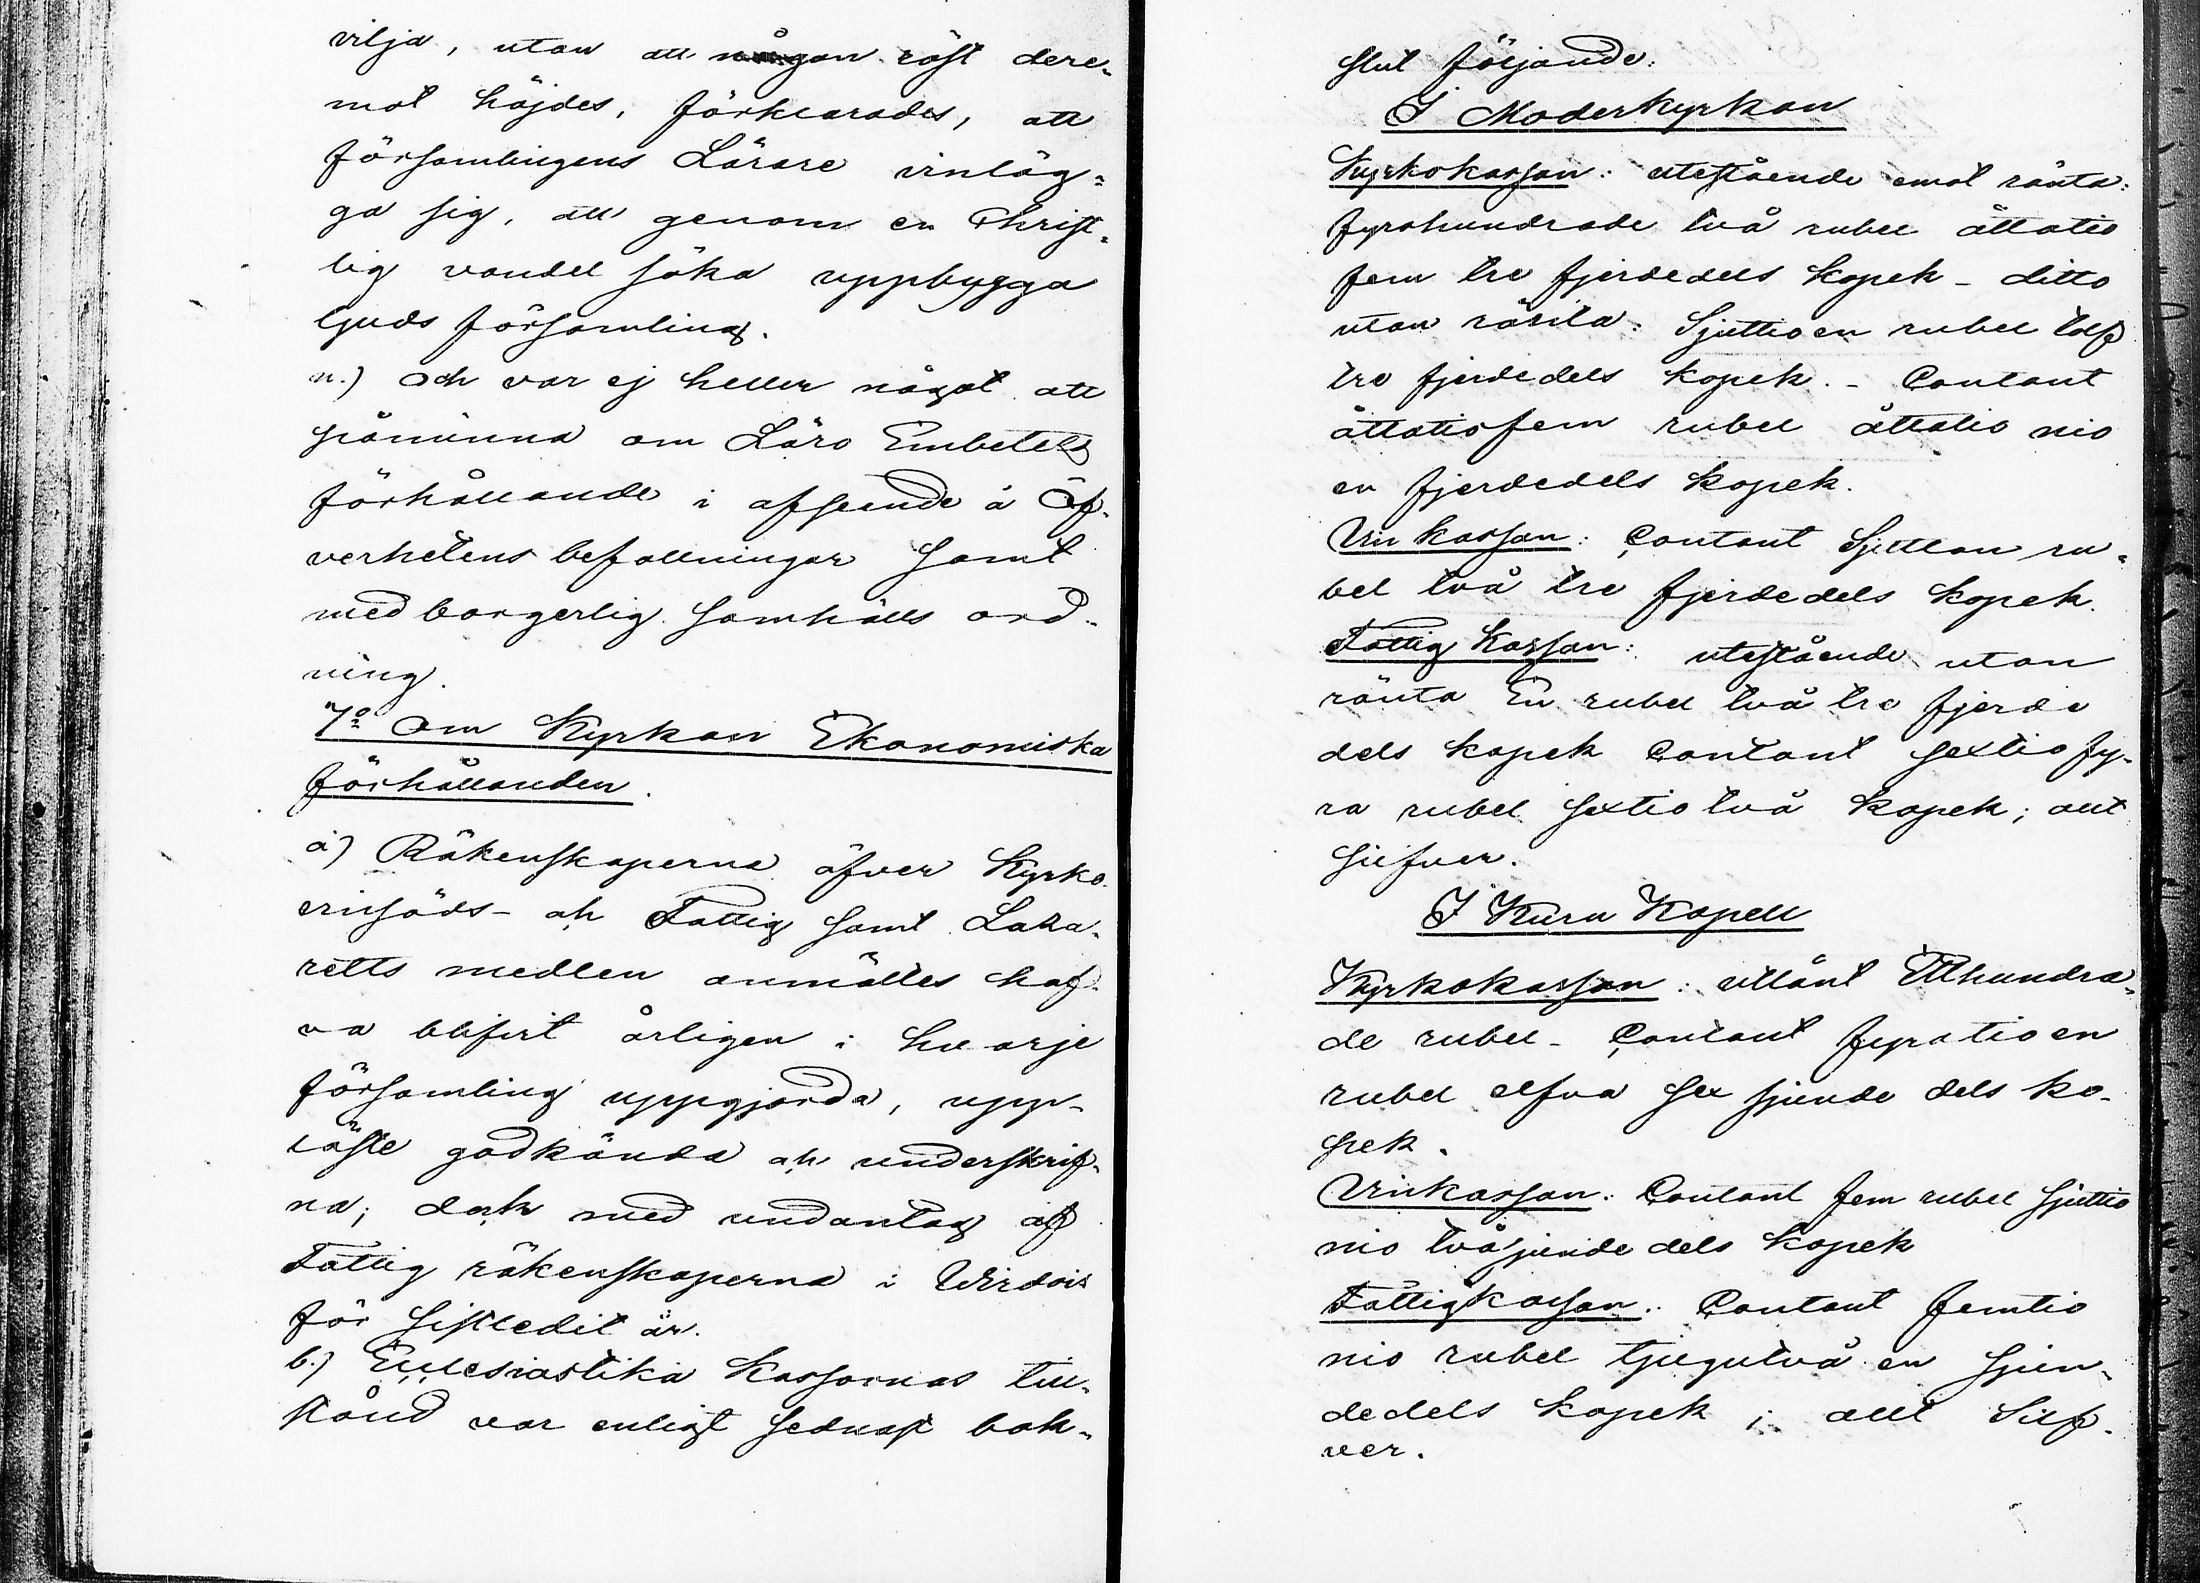 vilja, utan att någon röst dere-
mot höjdes, förklarades, att
församlingens Lärare vinläg-
ga sig, att genom en Christ-
lig vandel söka uppbygga
Guds församling.
n.) Och var ej heller något att
påminna om Läro Embetets
förhållande i afseende å Öf-
verhetens befallningar samt
medborgerlig samhälls ord-
ning.
7º Om Kyrkan Ekonomiska
förhållanden.
a) Räkenskaperna öfver Kyrko
ensöds- och Fattig samt Laza-
retts medlen anmältes haf-
va blifvit årligen i hvarje
församling uppgjorda, upp-
läste godkända och underskrif-
na; dock med undantag af
Fattig räkenskaperna i Wirdois
för sistledit år.
b.) Ecclesiastika Kassornas till-
stånd var enligt sednast bok-
slut följande:
I Moderkyrkan
Kyrkokassan: utestående emot ränta:
fyrahundrade två rubel åttatio
fem tre fjerdedels kopek - ditto
utan ränta: Sjuttioen rubel tolf
tre fjerdedels kopek. - Contant
åttatiofem rubel åttatio nio
en fjerdedels kopek.
Vin kassan: Contant Sjutton ru-
bel två tre fjerdedels kopek.
Fattig kassan: utestående utan
ränta En rubel två tre fjerde
dels kopek Contant sextio fy-
ra rubel sextio två kopek; allt
silfver.
I Kuru Kapell
Kyrkokassan: utlånt Etthundra-
de rubel - Contant fyratio en
rubel elfva sex sjunde dels ko-
pek.
Vinkassan: Contant fem rubel sjuttio
nio två sjunde dels kopek
Fattigkassan: Contant femtio
nio rubel tjugutvå en sjun-
dedels kopek; allt Silf-
ver.